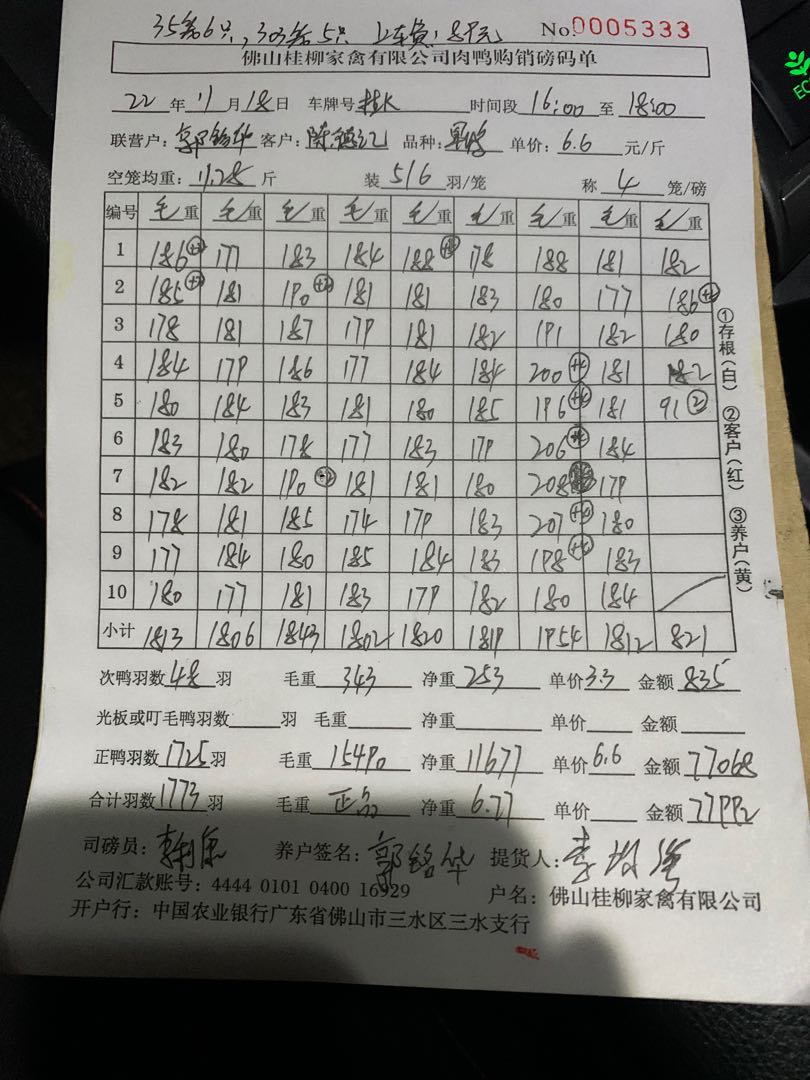 35笼6只,303笼5只 上车费:89元 No.0005333
佛山桂柳家禽有限公司肉鸭购销磅码单
22年11月18日 车牌号 时间段16:00至18:00
联营户:郭铭华 客户:陈德记 品种: 单价:6.6元/斤
空笼均重:11.28斤 装5/6羽/笼 称4笼/磅
编号 毛重 毛重 毛重 毛重 毛重 毛重 毛重 毛重 毛重
1 186 177 183 184 188 178 188 181 182
2 185 181 190 181 181 183 180 177 186
3 178 181 187 179 181 182 191 182 180
4 184 179 186 177 184 184 200+4 181 182
5 180 184 183 181 180 185 196+4 181 91②
6 183 180 178 177 183 179 206+4 184
7 182 182 190 181 181 180 208 179
8 178 181 185 174 179 183 207+4 180
9 177 184 180 185 184 183 198+4 183
10 180 177 181 183 179 182 180 184
小计 1813 1806 1843 1802 1820 1819 1954 1812 821
①存根(白) ②客户(红) ③养户(黄)
次鸭羽数48羽 毛重343 净重253 单价3.3 金额835
光板或叮毛鸭羽数 羽 毛重 净重 单价 金额
正鸭羽数1725羽 毛重15490 净重11677 单价6.6 金额77068
合计羽数1773羽 毛重正品 净重6.77 单价 金额77992
司磅员: 养户签名:郭铭华 提货人:
公司汇款账号:4444 0101 0400 16929 户名:佛山桂柳家禽有限公司
开户行:中国农业银行广东省佛山市三水区三水支行